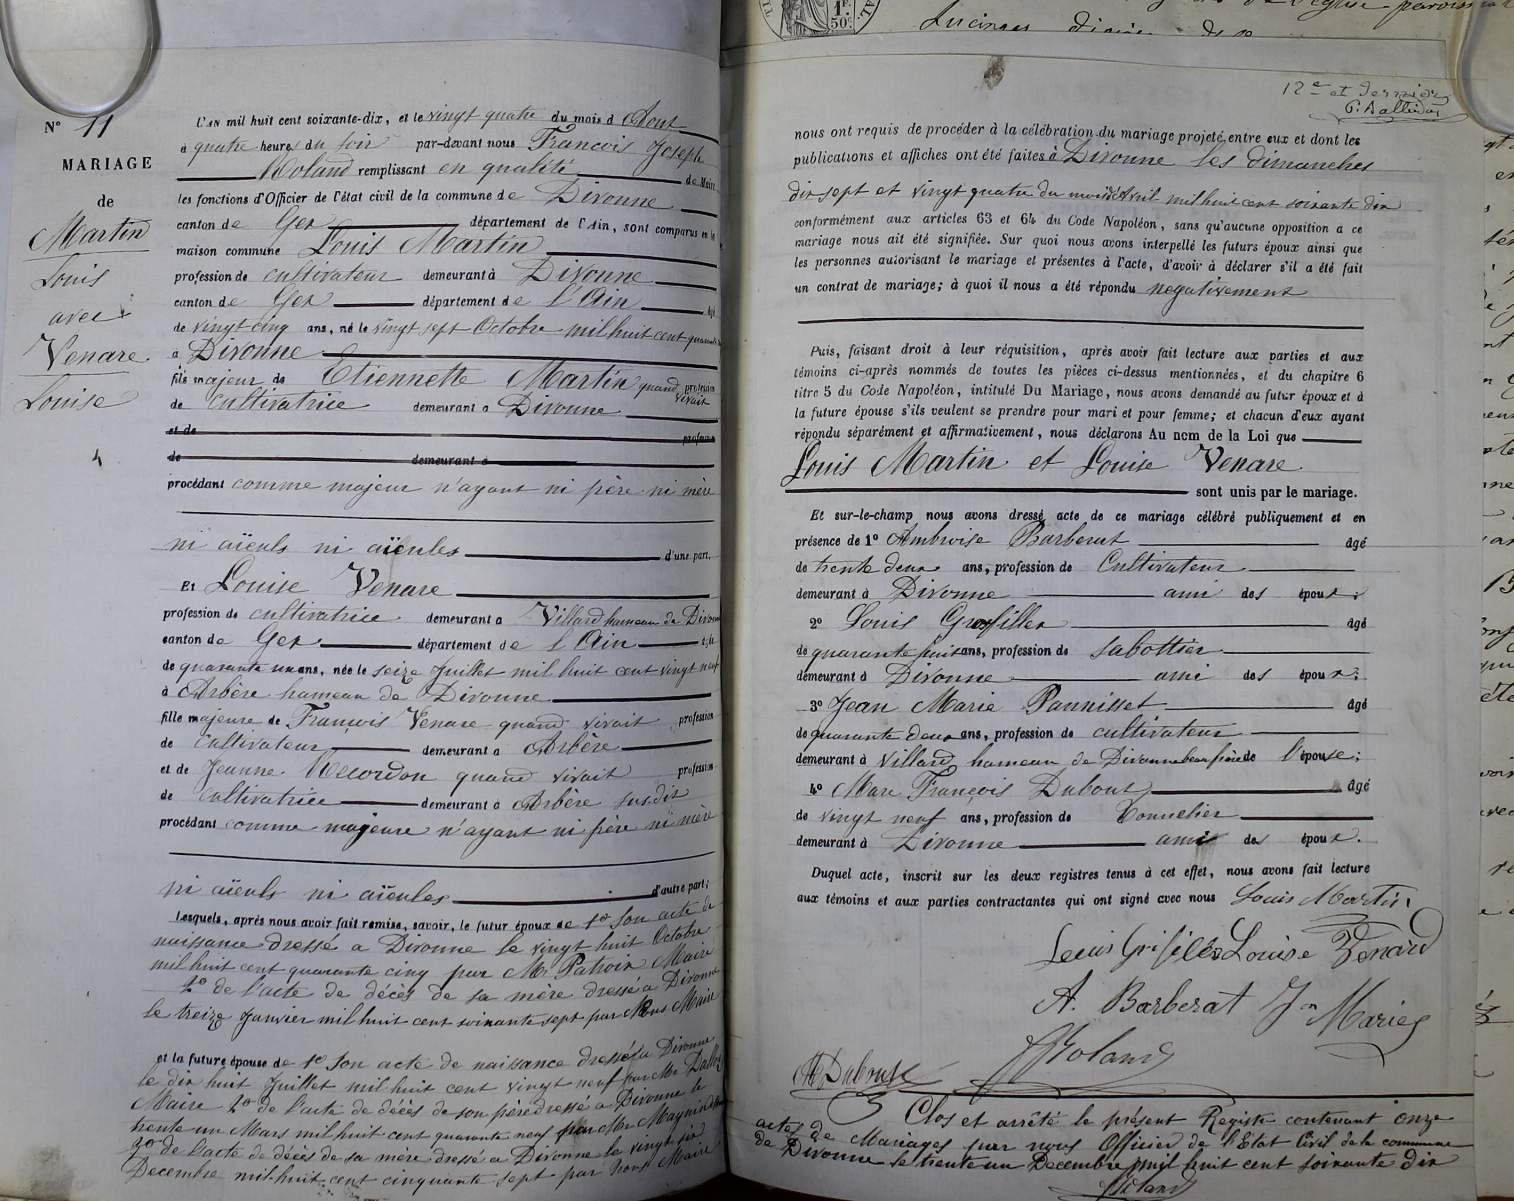 N° 11
MARIAGE
de
Martin
Louis
avec
Venare
Louise
4
L'AN mil huit cent soixante-dix, et le vingt quatre du mois d'Aout
à quatre heures du soir par-devant nous Francois Joseph
Roland remplissant en qualité de Maire
les fonctions d'Officier de l'état civil de la commune de Divonne
canton de Gex département de l'Ain, sont comparus en la
maison commune Louis Martin
profession de cultivateur demeurant à Divonne
canton de Gex département de l'Ain âgé
de vingt cinq ans, né le vingt sept Octobre mil huit cent quarante
à Divonne
fils majeur de Etiennette Martin quand vivait profession
de cultivatrice demeurant à Divonne
et de profession
de demeurant à
procédant comme majeur n'ayant ni père ni mère
ni aïeuls ni aïeules d'une part,
Et Louise Venare
profession de cultivatrice demeurant à Villard hameau de Divonne
canton de Gex département de l'Ain âgée
de quarante un ans, née le seize Juillet mil huit cent vingt neuf
à Arbère hameau de Divonne
fille majeure de François Venare quand vivait profession
de cultivateur demeurant à Arbère
et de Jeanne Recordon quand vivait profession
de cultivatrice demeurant à Arbère susdit
procédant comme majeure n'ayant ni père ni mère
ni aïeuls ni aïeules d'autre part;
Lesquels, après nous avoir fait remise, savoir, le futur époux de 1° Son acte de
naissance dressé a Divonne le vingt huit Octobre
mil huit cent quarante cinq par Mr Patroix Maire
2° de l'acte de décès de sa mère dressé a Divonne
le treize Janvier mil huit cent soixante sept par Nous Maire
et la future épouse de 1° Son acte de naissance dressé a Divonne
le dix huit Juillet mil huit cent vingt neuf par Mr
Maire 2° de l'acte de décès de son père dressé a Divonne le
trente un Mars mil huit cent quarante neuf par Mr Maynin
3° de l'acte de décès de sa mère dressé a Divonne le vingt six
Decembre mil huit cent cinquante sept par Nous Maire
12e et dernier
nous ont requis de procéder à la célébration du mariage projeté entre eux et dont les
publications et affiches ont été faites à Divonne les dimanches
dix sept et vingt quatre du mois d'Avril mil huit cent soixante dix
conformément aux articles 63 et 64 du Code Napoléon, sans qu'aucune opposition a ce
mariage nous ait été signifiée. Sur quoi nous avons interpellé les futurs époux ainsi que
les personnes autorisant le mariage et présentes à l'acte, d'avoir à déclarer s'il a été fait
un contrat de mariage; à quoi il nous a été répondu negativement
Puis, faisant droit à leur réquisition, après avoir fait lecture aux parties et aux
témoins ci-après nommés de toutes les pièces ci-dessus mentionnées, et du chapitre 6
titre 5 du Code Napoléon, intitulé Du Mariage, nous avons demandé au futur époux et à
la future épouse s'ils veulent se prendre pour mari et pour femme; et chacun d'eux ayant
répondu séparément et affirmativement, nous déclarons Au nom de la Loi que
Louis Martin et Louise Venare
sont unis par le mariage.
Et sur-le-champ nous avons dressé acte de ce mariage célébré publiquement et en
présence de 1° Ambroise Barberat âgé
de trente deux ans, profession de Cultivateur
demeurant à Divonne ami des époux;
2° Louis Grosfiller âgé
de quarante huit ans, profession de sabottier
demeurant à Divonne ami des époux;
3° Jean Marie Pannisset âgé
de quarante deux ans, profession de cultivateur
demeurant à Villard hameau de Divonne beau frère de l'épouse;
4° Marc François Dubout âgé
de vingt neuf ans, profession de Tonnelier
demeurant à Divonne ami des époux.
Duquel acte, inscrit sur les deux registres tenus à cet effet, nous avons fait lecture
aux témoins et aux parties contractantes qui ont signé avec nous Louis Martin
Louise Venard
A. Barberat Jn Marie
Roland
Clos et arrêté le présent Registre contenant onze
actes de Mariages par nous Officier de l'Etat Civil de la commune
de Divonne le trente un Decembre mil huit cent soixante dix
Roland